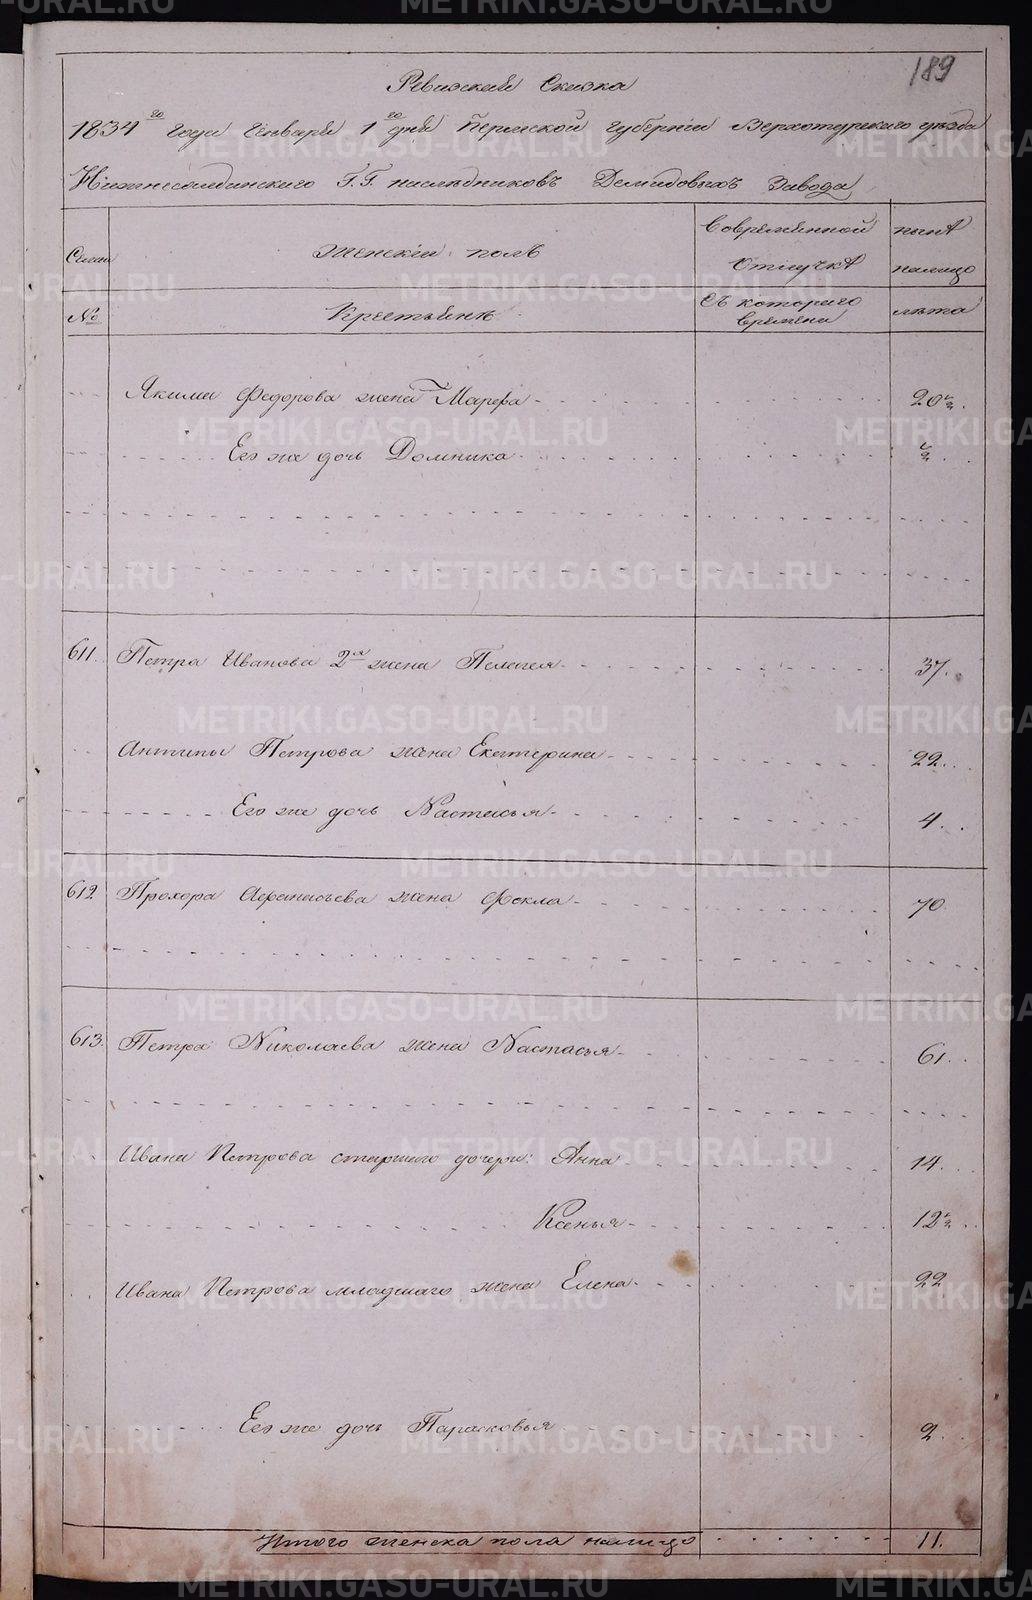 189
Ревизская Сказка
1834го года Генваря 1го дня Пермской губернии Верхотурского уезда
Нижнесалдинского Г.Г. наследниковъ Демидовыхъ Завода
Семьи
№
Женскій полъ
Крестьянѣ
Во временной Отлучкѣ
Съ котораго времени
нынѣ на лицо
лѣта
Якима Федорова жена Марфа 20½
Его же дочь Домника ½
611. Петра Иванова 2я жена Пелагея 37.
Антипы Петрова жена Екатерина 22.
Его же дочь Настасья 4.
612 Прохора Афанасьева жена Фекла 70
613. Петра Николаева жена Настасья 61.
Ивана Петрова старшаго дочери: Анна 14.
Ксенья 12½
Ивана Петрова младшаго жена Елена 22
Его же дочь Парасковья 2.
Итого женска пола налицо 11.
METRIKI.GASO-URAL.RU